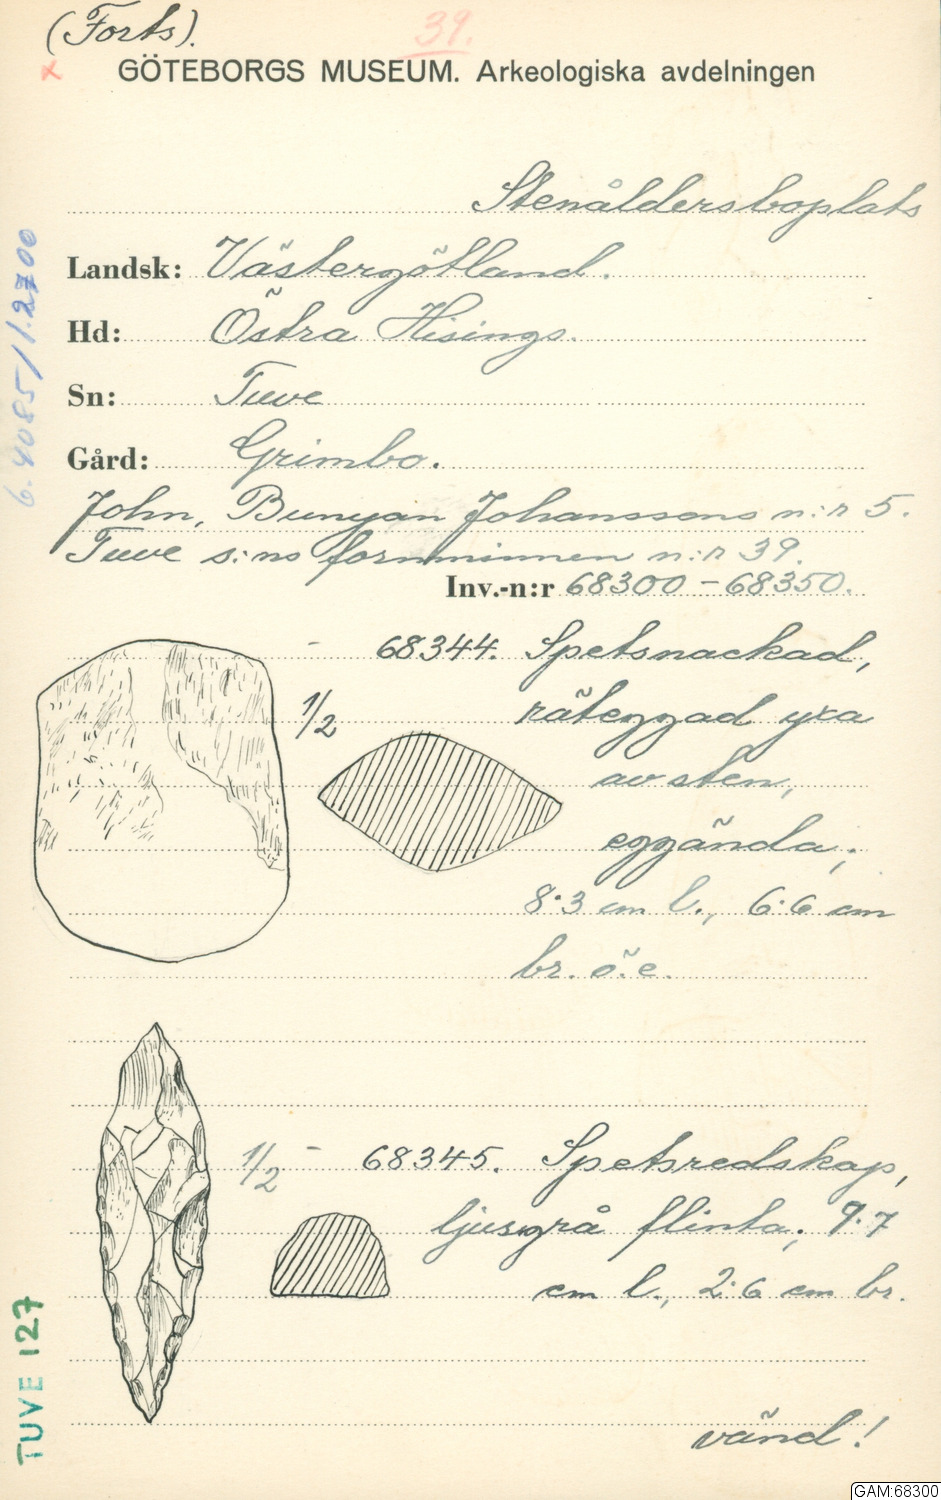 (Forts).
39.
x
GÖTEBORGS MUSEUM. Arkeologiska avdelningen
Stenåldersboplats
Landsk: Västergötland.
Hd: Östra Hisings.
Sn: Tuve
Gård: Grimbo.
John, Bunyan Johanssons n:r 5.
Tuve s:ns fornminnen n:r 39.
Inv.-n:r 68300 - 68350.
- 68344. Spetsnackad,
1/2 räteggad yxa
av sten,
eggända;
8·3 cm l., 6·6 cm
br. ö. e.
1/2 - 68345. Spetsredskap,
ljusgrå flinta; 9·7
cm l., 2·6 cm br.
vänd!
6.4085/1.2700
TUVE 127
GAM:68300